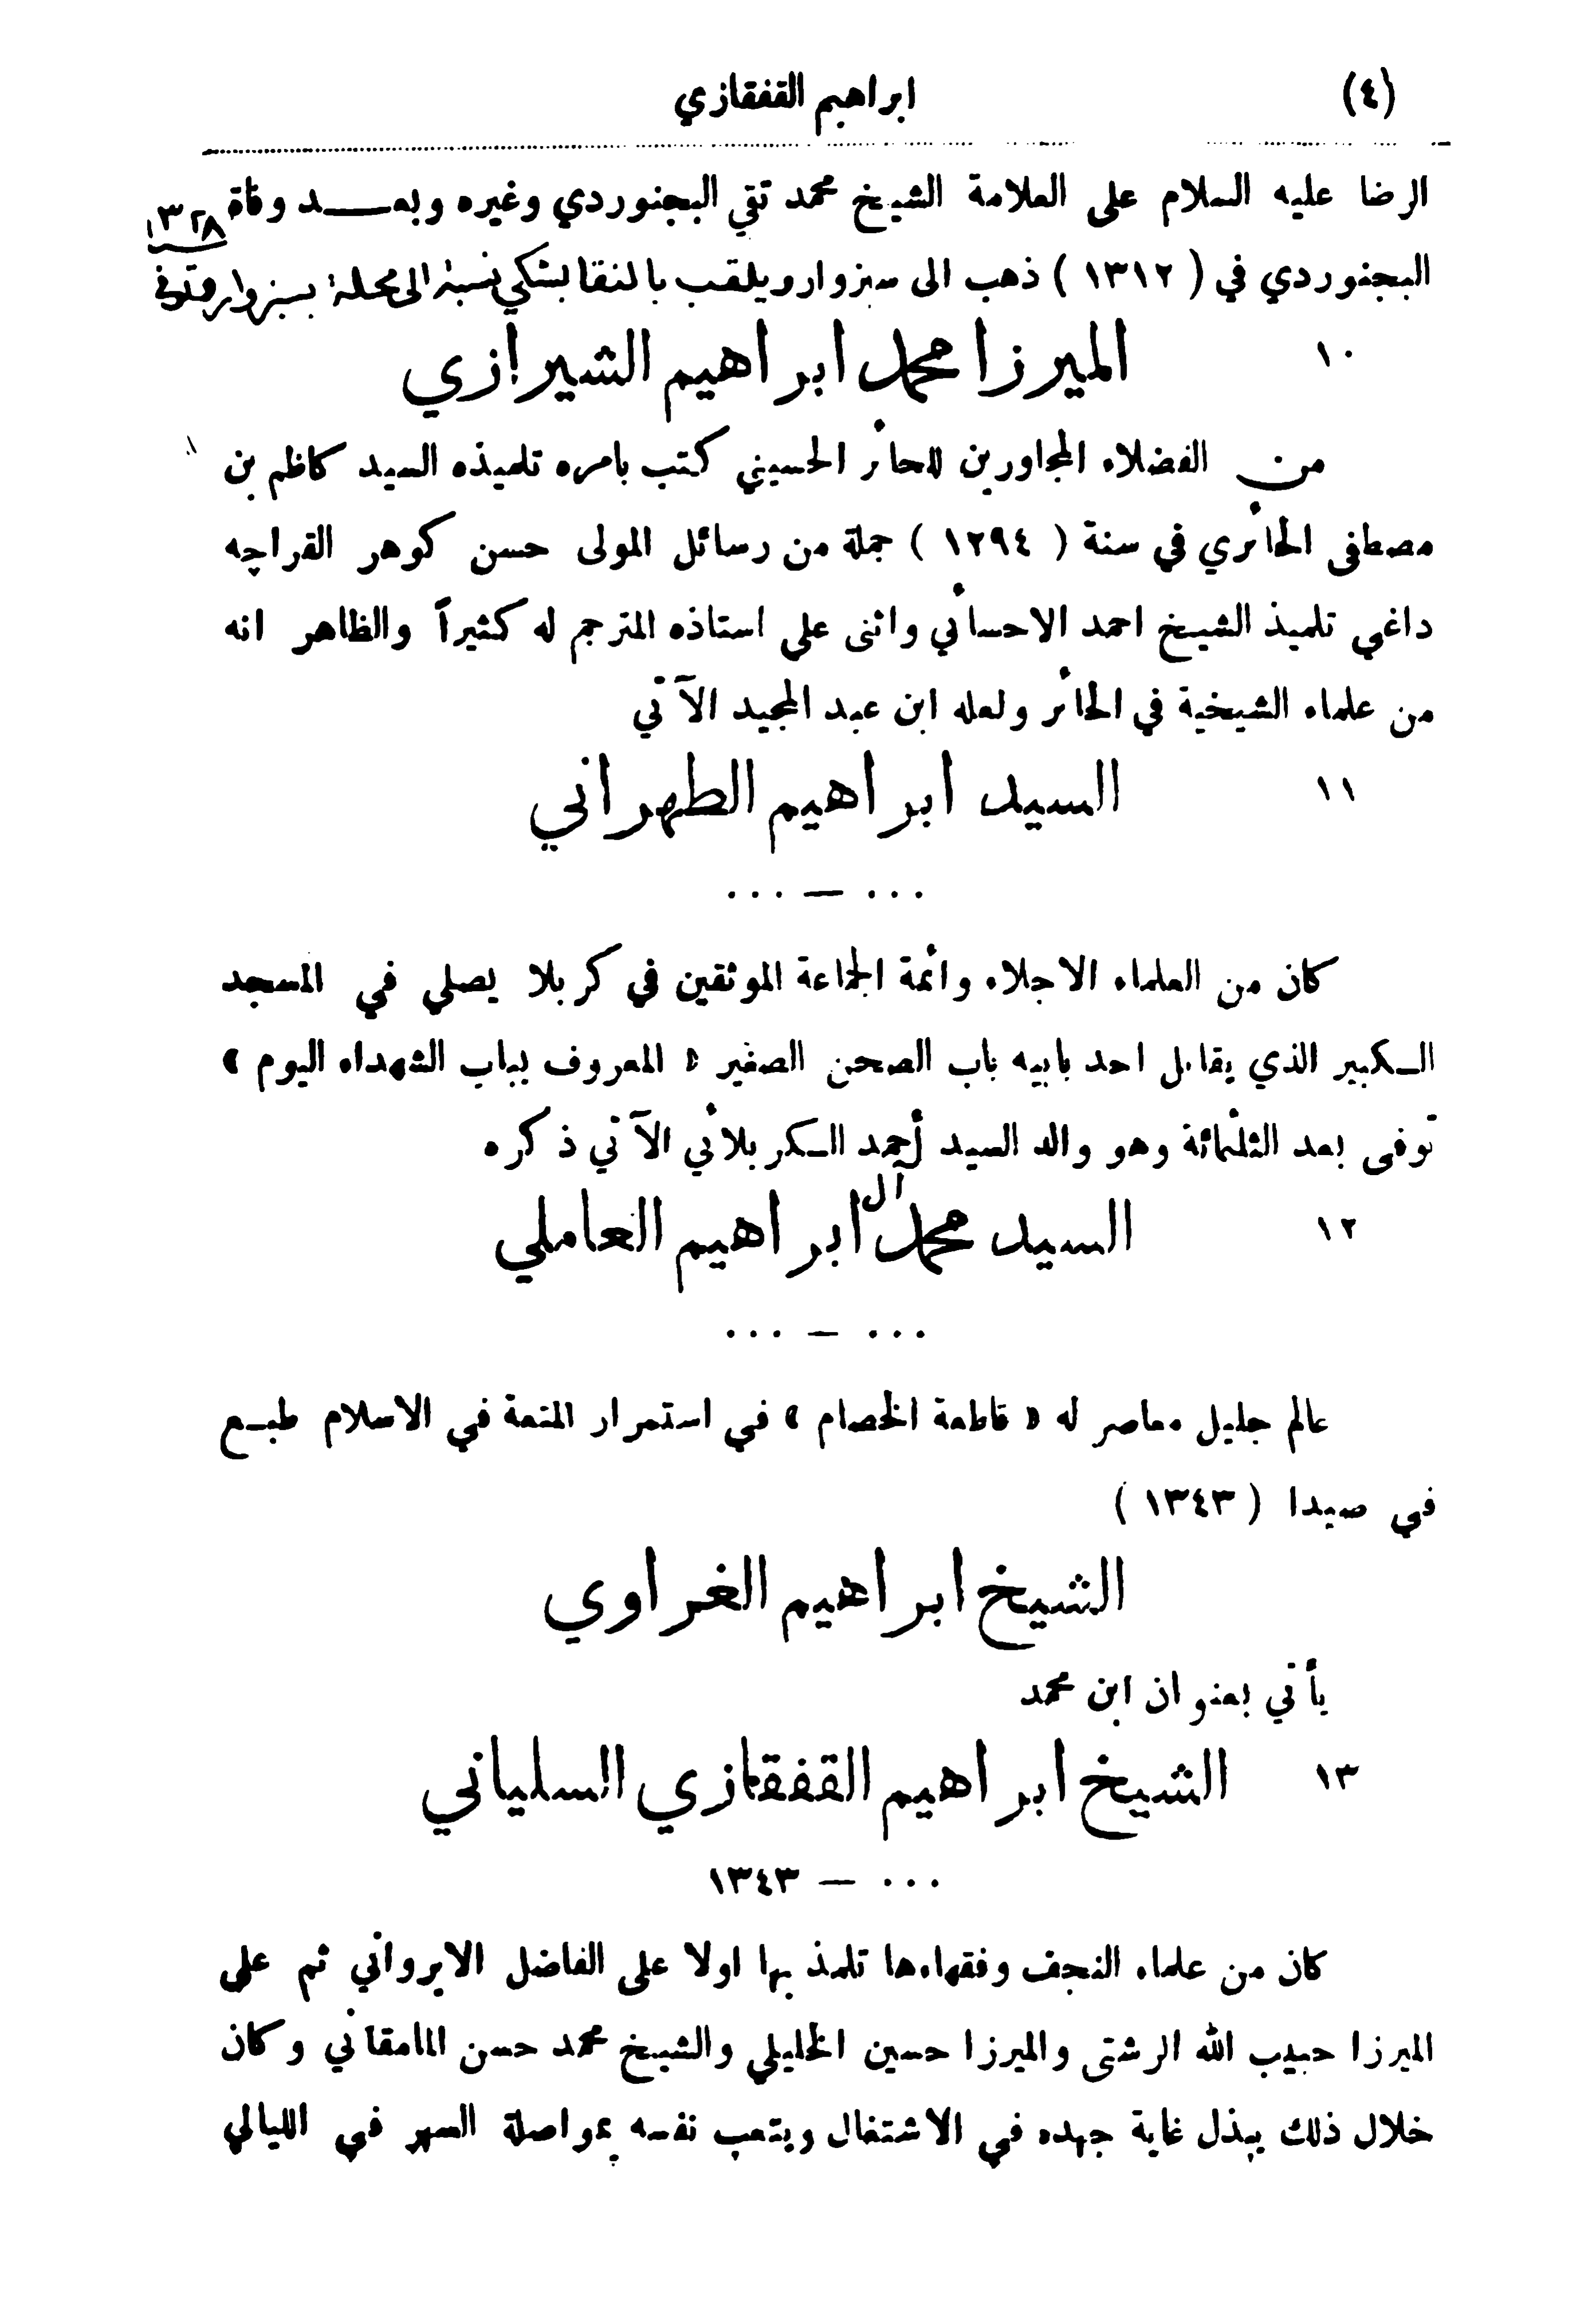 (٤) ابراهيم القفقازي
الرضا عليه السلام على العلامة الشيخ محمد تقي البجنوردي وغيره وبعد وفاة
١٣٢٨
البجنوردي في ( ١٣١٢ ) ذهب الى سبزوار ويلقب بالنقابشكي نسبة الى محلة بسبزوار وتوفي
١٠ الميرزا محمد ابراهيم الشيرازي
من الفضلاء المجاورين للحائر الحسيني كتب بامره تلميذه السيد كاظم بن
مصطفى الحائري في سنة ( ١٢٩٤ ) جملة من رسائل المولى حسن كوهر القراچه
داغي تلميذ الشيخ احمد الاحسائي واثنى على استاذه المترجم له كثيراً والظاهر انه
من علماء الشيخية في الحائر ولعله ابن عبد المجيد الآتي
١١ السيد ابراهيم الطهراني
... — ...
كان من العلماء الاجلاء وائمة الجماعة الموثقين في كربلا يصلي في المسجد
الكبير الذي يقابل احد بابيه باب الصحن الصغير « المعروف بباب الشهداء اليوم »
توفى بعد الثلثمائة وهو والد السيد أحمد الكربلائي الآتي ذكره
١٢ السيد محمد آل ابراهيم العاملي
... — ...
عالم جليل معاصر له « قاطعة الخصام » في استمرار المتعة في الاسلام طبع
في صيدا ( ١٣٤٣ )
الشيخ ابراهيم الغراوي
يأتي بعنوان ابن محمد
١٣ الشيخ ابراهيم القفقازي السلياني
... — ١٣٤٣
كان من علماء النجف وفقهاءها تلمذ بها اولا على الفاضل الايرواني ثم على
الميرزا حبيب الله الرشتى والميرزا حسين الخليلي والشيخ محمد حسن المامقاني وكان
خلال ذلك يبذل غاية جهده في الاشتغال ويتعب نفسه بمواصلة السهر في الليالي